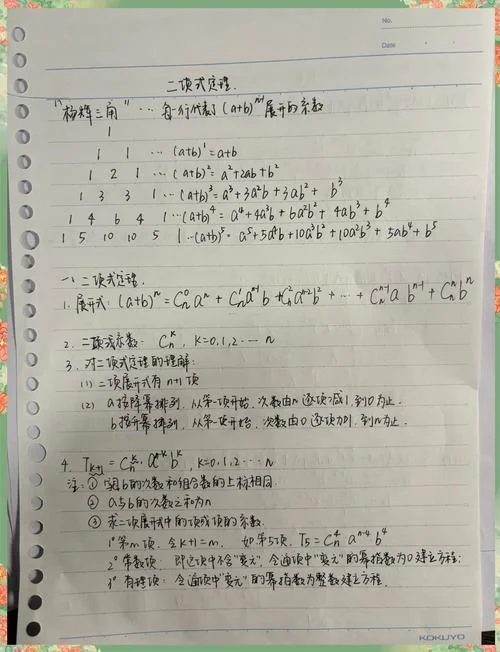 No.
Date
二项式定理.
"杨辉三角" … 每一行代表了 (a+b)ⁿ⁻¹ 展开的系数
1
1 1 … (a+b)¹ = a+b
1 2 1 … (a+b)² = a²+2ab+b²
1 3 3 1 … (a+b)³ = a³+3a²b+3ab²+ b³
1 4 6 4 1 … (a+b)⁴ = a⁴+4a³b+6a²b²+ 4ab³+b⁴
1 5 10 10 5 1 … (a+b)⁵ = a⁵+5a⁴b+10a³b²+10a²b³+5ab⁴+b⁵
一、二项式定理.
1. 展开式: (a+b)ⁿ = Cₙ⁰aⁿ + Cₙ¹aⁿ⁻¹b + Cₙ²aⁿ⁻²b² + … + Cₙⁿ⁻¹a bⁿ⁻¹ + Cₙⁿbⁿ
2. 二项式系数: Cₙᵏ, K=0,1,2…n
3. 对二项式定理的理解:
(1) 二项展开式有 n+1 项
(2) a按降幂排列, 从第一项开始, 次数由n逐项减1, 到0为止.
b按升幂排列, 从第一项开始, 次数由0逐项加1, 到n为止.
4. Tₖ₊₁ = Cₙᵏ aⁿ⁻ᵏbᵏ, K=0,1,2…n
注: ① b的次数和组合数的上标相同.
② a与b的次数之和为n
③ 求二项展开式中的项或项的系数.
1° 第m项, 令K+1=m, 如第5项, T₅=Cₙ⁴ aⁿ⁻⁴ b⁴
2° 常数项: 即这项中不含"变元", 令通项中"变元"的幂指数为0建立方程;
3° 有理项: 令通项中"变元"的幂指数为整数建立方程.
KOKUYO